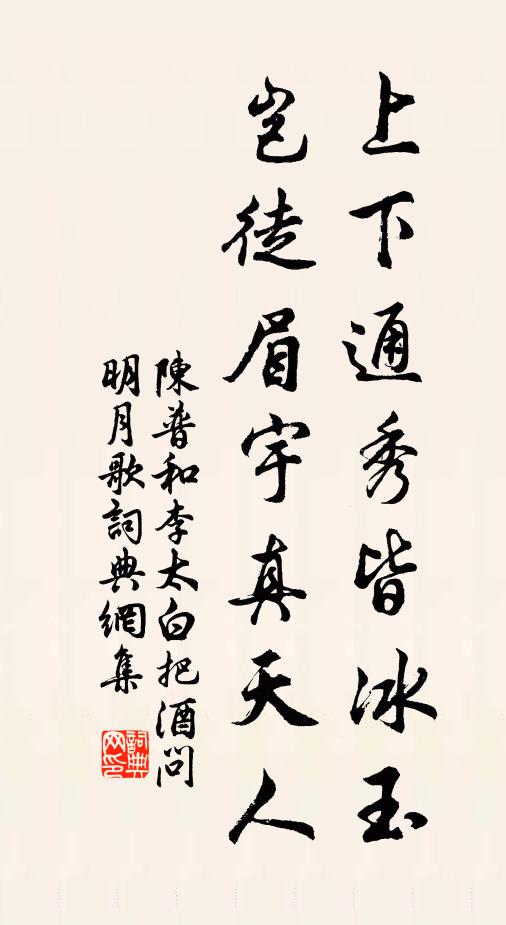 上下通秀皆冰玉
豈徒眉宇真天人
陳普和李太白把酒問
明月歌詞典網集
詞典网印